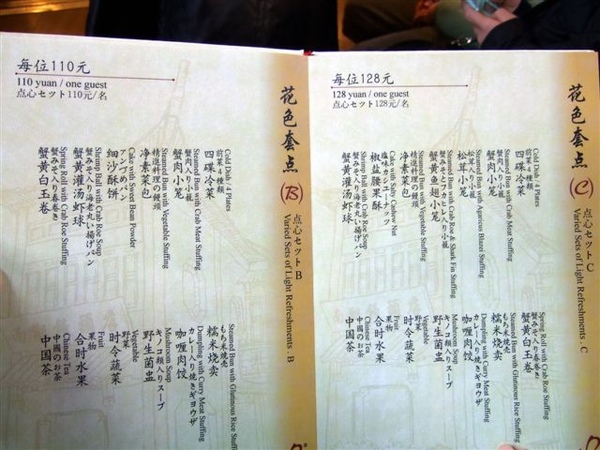 每位110元
110 yuan / one guest
点心セット110元/名
花色套点
(B)
点心セットB
Varied Sets of Light Refreshments · B
Cold Dish / 4 Plates
前菜4種類
四碟冷菜
Steamed Bun with Crab Meat Stuffing
蟹肉入り小籠
蟹肉小笼
Steamed Bun with Vegetable Stuffing
精進料理の饅頭
净素菜包
Cake with Sweet Bean Powder
アンプめん
细沙酥饼
Shrimp Ball with Crab Roe Soup
蟹みそ入り海老丸い揚げパン
蟹黄灌汤虾球
Spring Roll with Crab Roe Stuffing
蟹みそ入り春巻き
蟹黄白玉卷
Steamed Bun with Glutinous Rice Stuffing
もち米焼売
糯米烧卖
Dumpling with Curry Meat Stuffing
カレー入り焼きギョウザ
咖喱肉饺
Mushroom Soup
キノコ類入りスープ
野生菌盅
Vegetable
野菜
时令蔬菜
Fruit
果物
合时水果
Chinese Tea
中国のお茶
中国茶
每位128元
128 yuan / one guest
点心セット128元/名
花色套点
(C)
点心セットC
Varied Sets of Light Refreshments · C
Cold Dish / 4 Plates
前菜4種類
四碟冷菜
Steamed Bun with Crab Meat Stuffing
蟹肉入り小籠
蟹肉小笼
Steamed Bun with Agaricus Blazei Stuffing
松茸入り小籠
松茸小笼
Steamed Bun with Crab Roe & Shark Fin Stuffing
蟹みそとフカヒレ入り小籠
蟹黄鱼翅小笼
Steamed Bun with Vegetable Stuffing
精進料理の饅頭
净素菜包
Cake with Salty Cashew Nut
塩味カシューナッツ
椒盐腰果酥
Shrimp Ball with Crab Roe Soup
蟹みそ入り海老丸い揚げパン
蟹黄灌汤虾球
Spring Roll with Crab Roe Stuffing
蟹みそ入り春巻き
蟹黄白玉卷
Steamed Bun with Glutinous Rice Stuffing
もち米焼売
糯米烧卖
Dumpling with Curry Meat Stuffing
カレー入り焼きギョウザ
咖喱肉饺
Mushroom Soup
キノコ類入りスープ
野生菌盅
Vegetable
野菜
时令蔬菜
Fruit
果物
合时水果
Chinese Tea
中国のお茶
中国茶